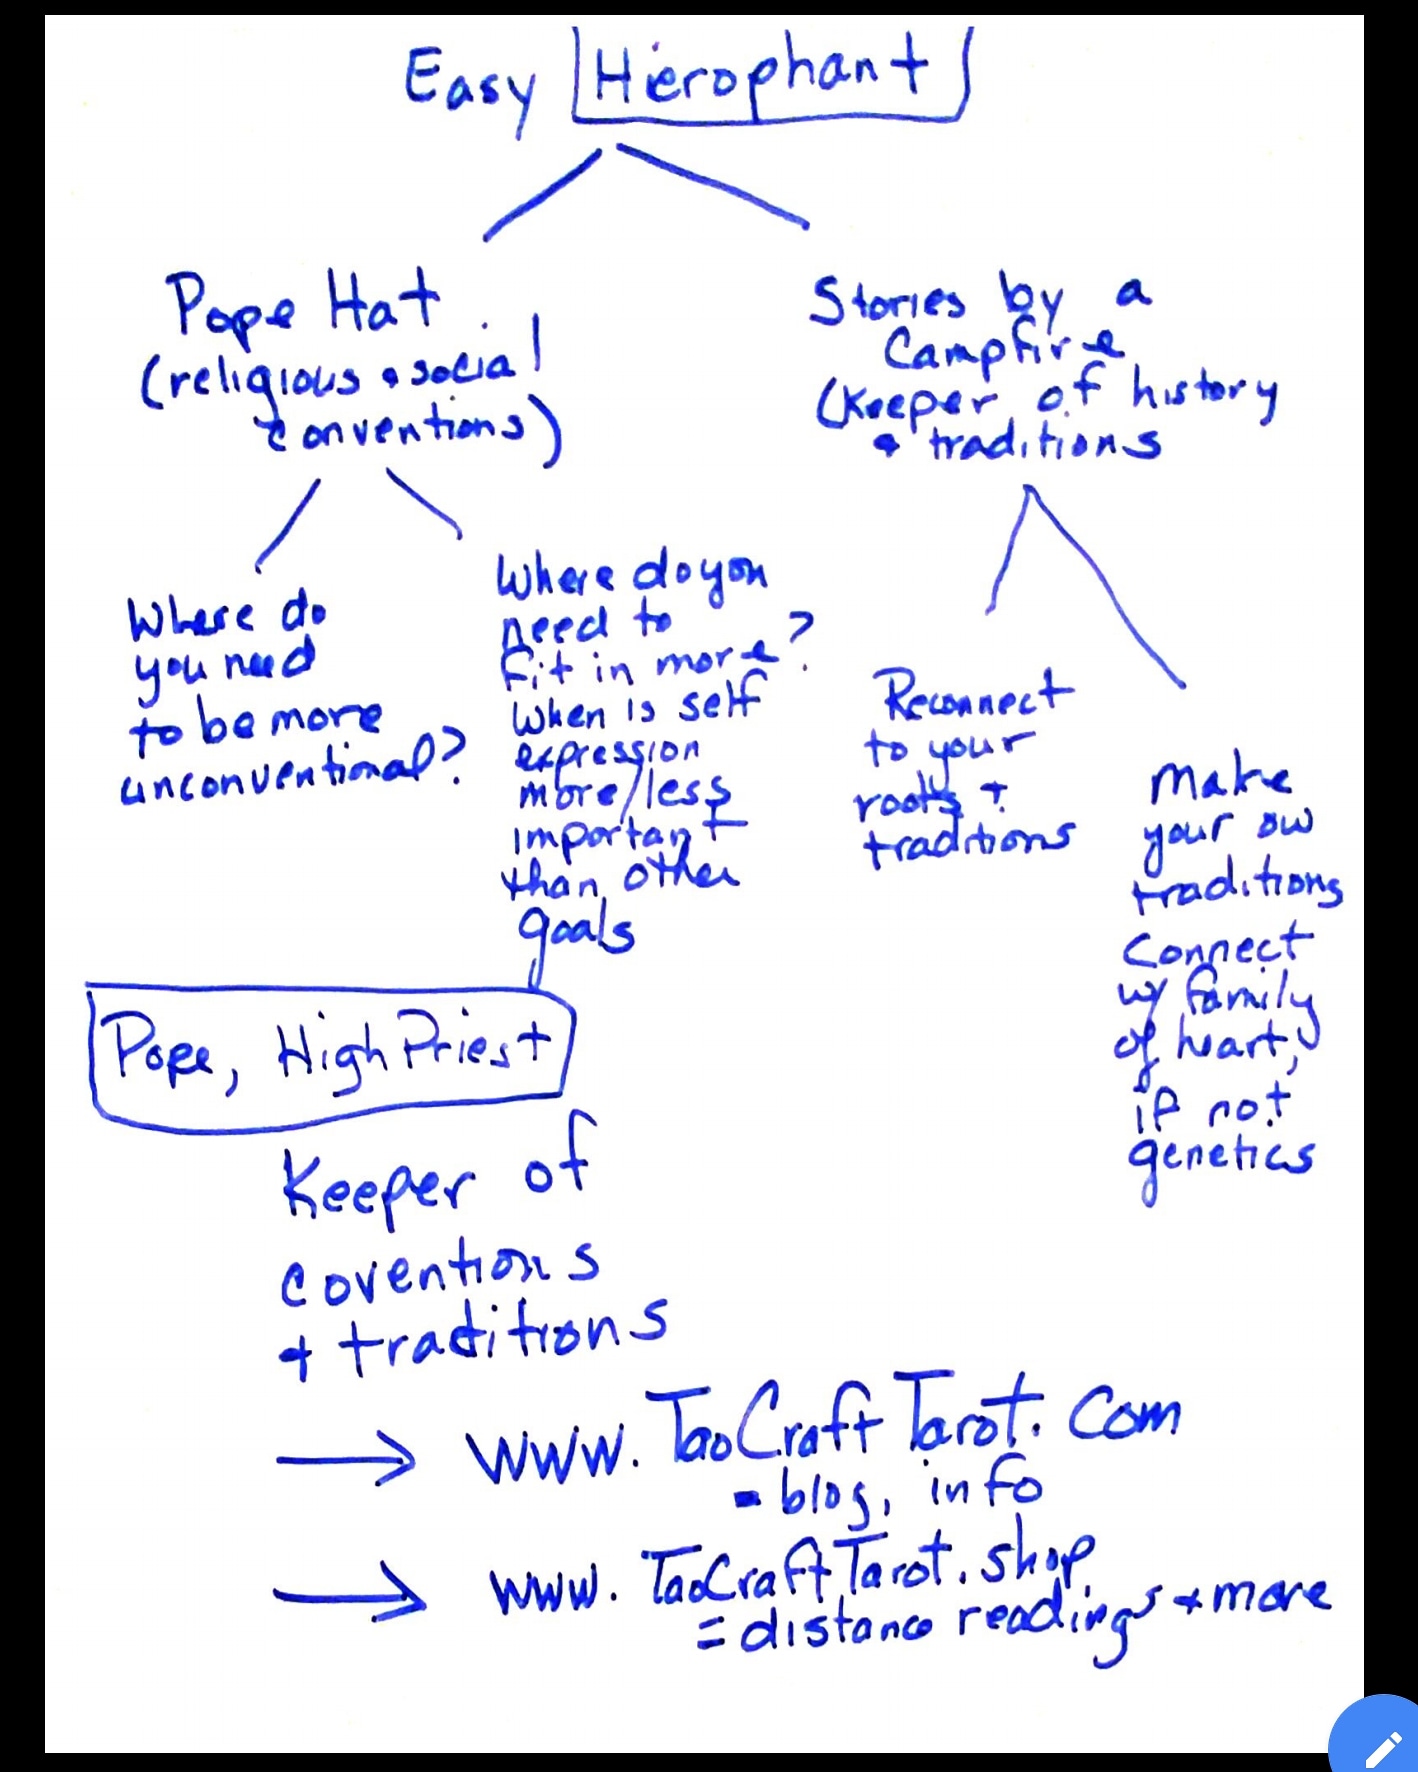 Easy Hierophant
Pope Hat
(religious & social
conventions)
Stories by a
Campfire
(Keeper of history
& traditions
Where do
you need
to be more
unconventional?
Where do you
need to
fit in more?
When is self
expression
more/less
important
than other
goals
Reconnect
to your
roots +
traditions
Make
your ow
traditions
Connect
w/ family
of heart,
if not
genetics
Pope, High Priest
Keeper of
coventions
+ traditions
→ www.TaoCraftTarot.com
= blog, info
→ www.TaoCraftTarot.shop
= distance readings + more